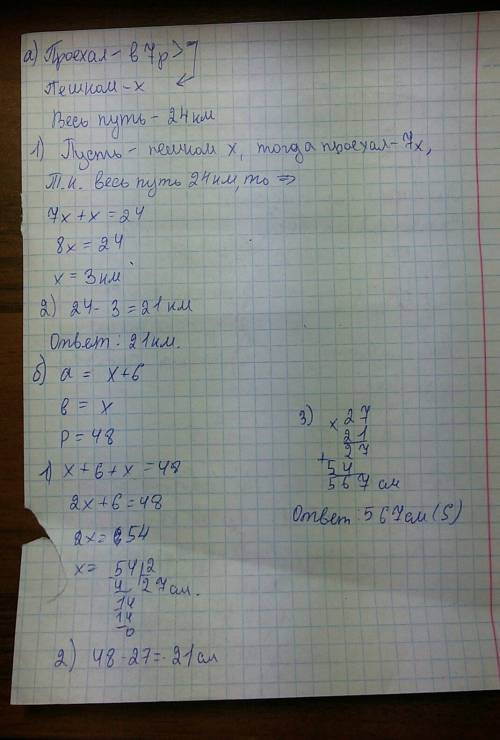 а) Проехал - в 7р >
Пешком - х
Весь путь - 24 км
1) Пусть - пешком х, тогда проехал - 7х,
т.к. весь путь 24 км, то =>
7х + х = 24
8х = 24
х = 3 км
2) 24 - 3 = 21 км
Ответ: 21 км.
б) а = х + 6
в = х
Р = 48
1) х + 6 + х = 48
2х + 6 = 48
2х = 54
х = 54 | 2
4 27 см.
14
14
0
2) 48 - 27 = 21 см
3) × 27
21
27
+ 54
567 см
Ответ: 567 см (S)